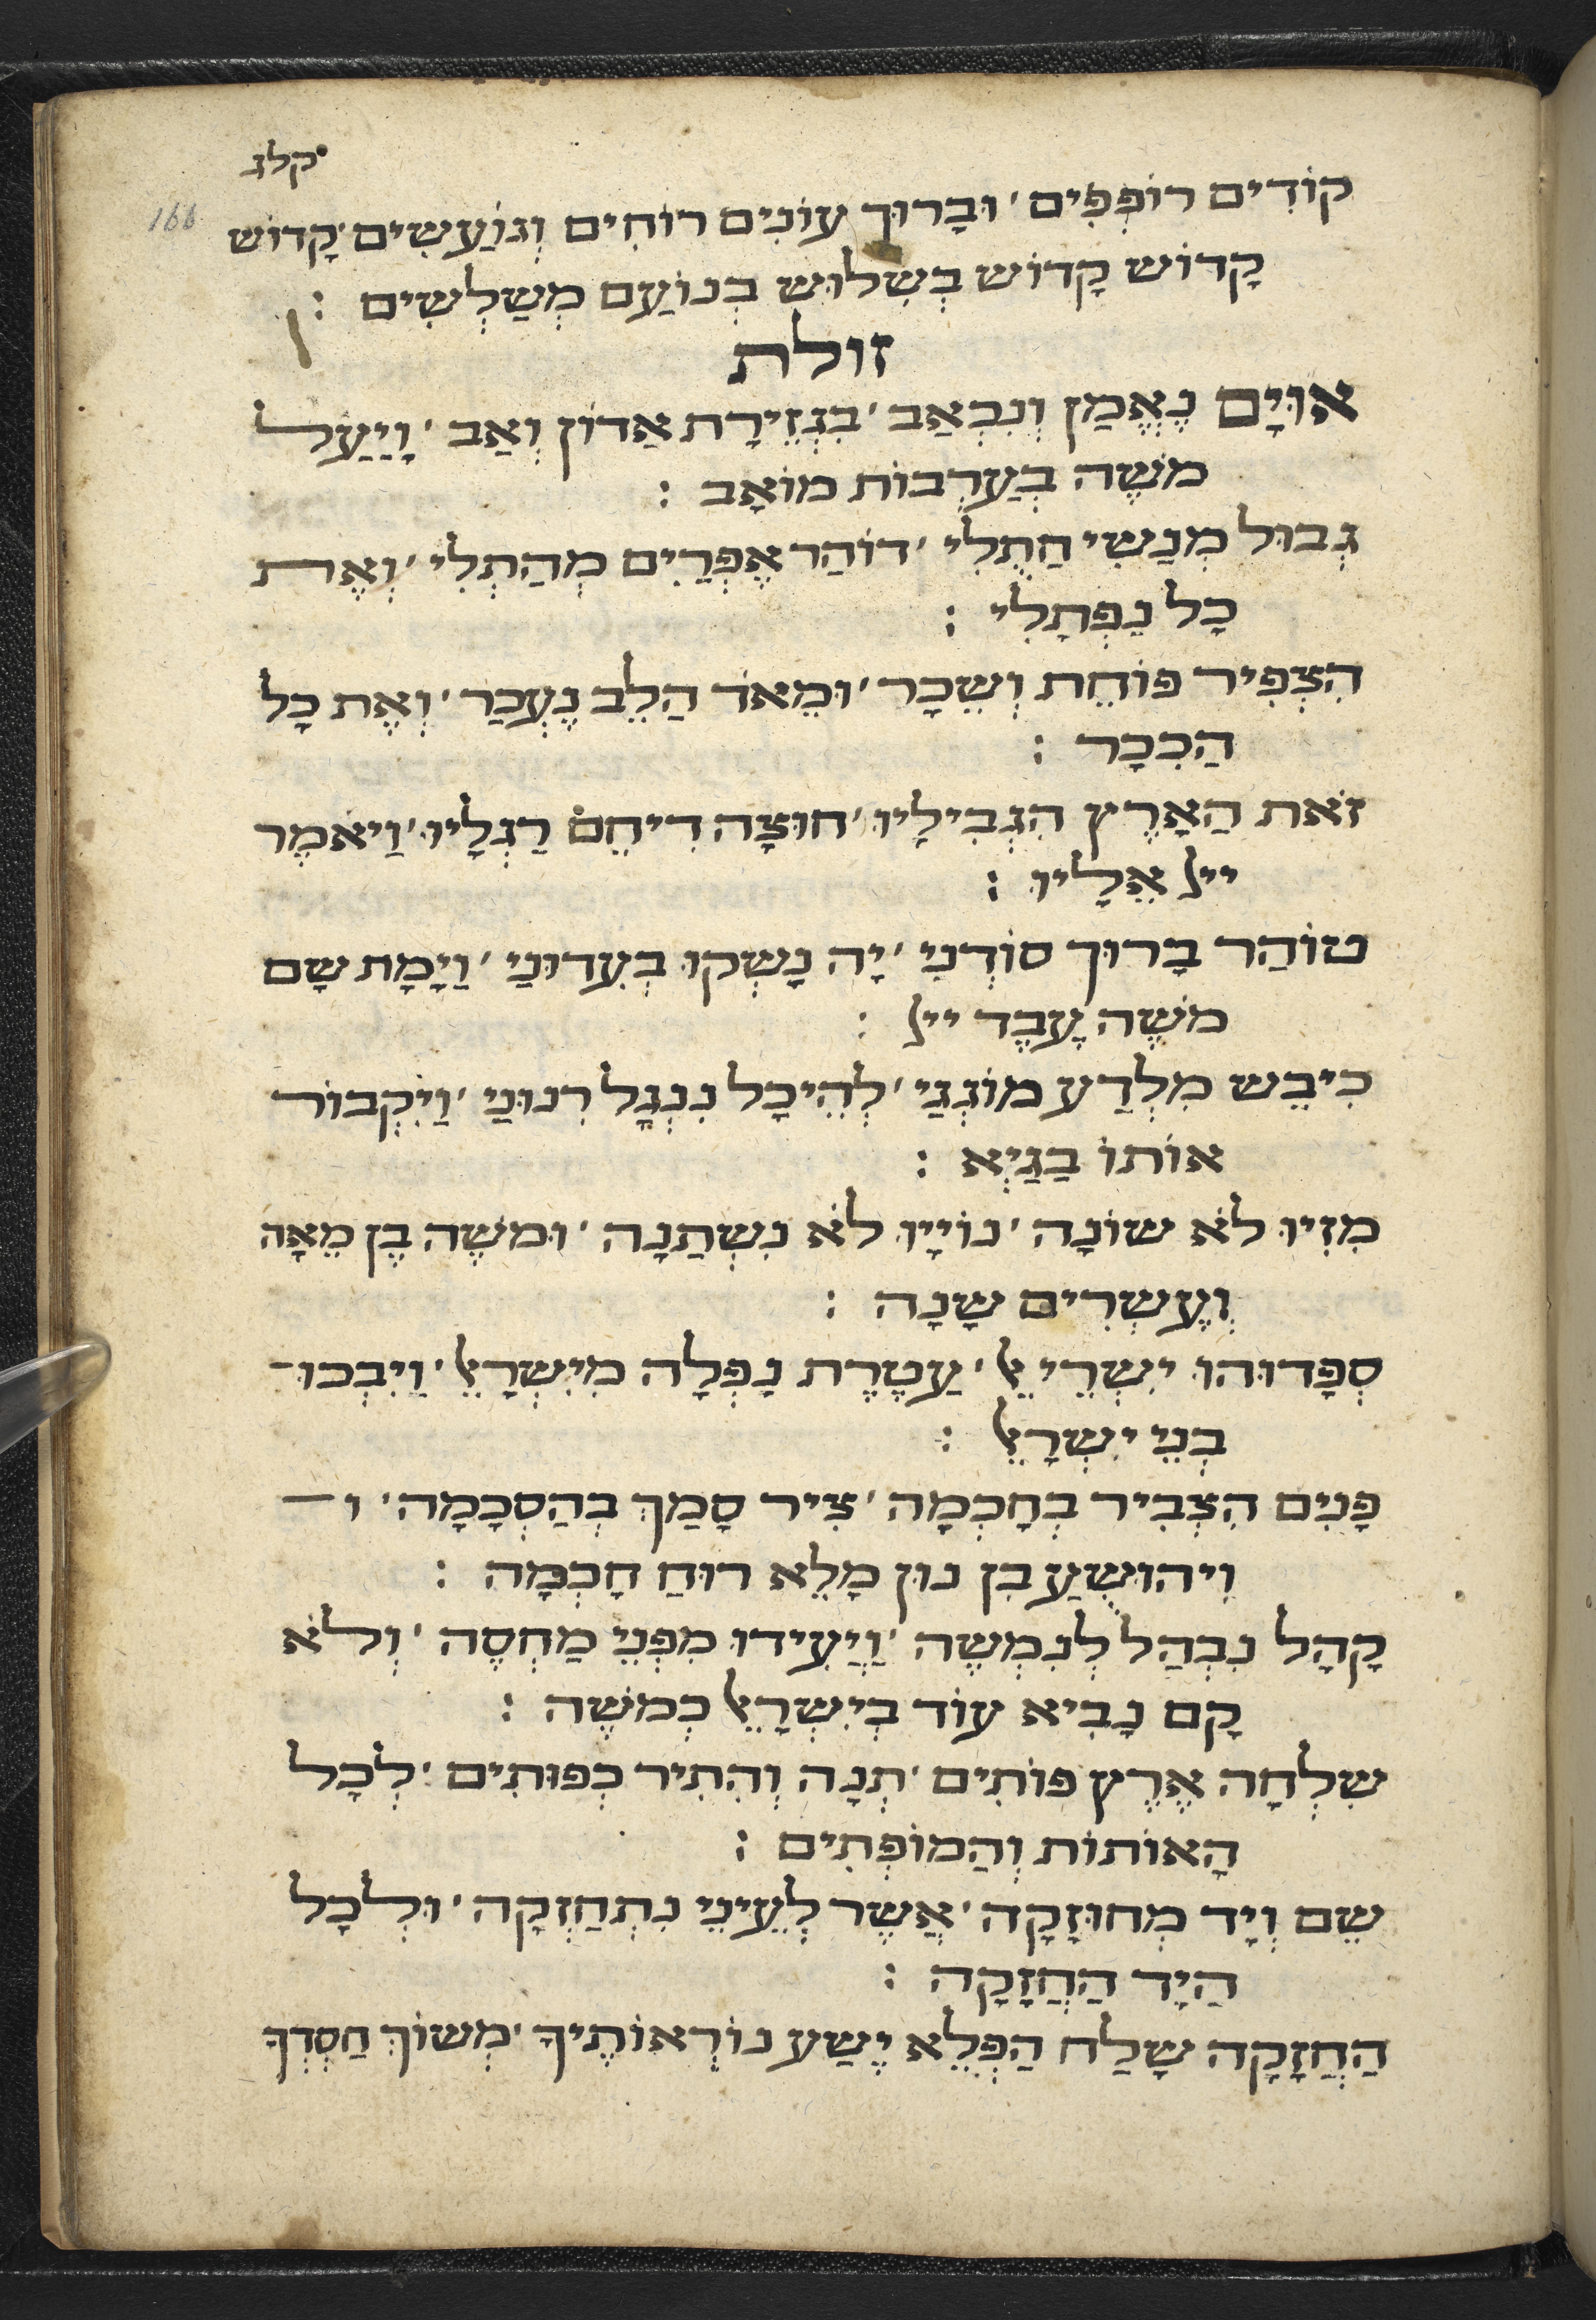 קלג
166
קוֹדִים רוֹפְפִים ׳ וּבָרוּךְ עוֹנִים רוֹחִים וְגוֹעֲשִׁים ׳ קָדוֹשׁ
קָדוֹשׁ קָדוֹשׁ בְּשִׁלּוּשׁ בְּנוֹעַם מְשַׁלְּשִׁים :
זולת
אוּיָּם נֶאֱמַן וְנִכְאַב ׳ בִּגְזֵירַת אַדוֹן וְאַב ׳ וַיַּעַל
משֶׁה בְּעַרְבוֹת מוֹאָב :
גְבוּל מְנַשִּׁי חַתֻלִי ׳ דוֹהַר אֶפְרַיִם מְהַתְלִי ׳ וְאֶת
כָּל נַפְתָּלִי :
הִצְפִּיר פּוֹחֵת וְשֵׁכָר ׳ וּמֵאֹד הַלֵּב נֶעְכַּר ׳ וְאֶת כָּל
הַכִּכָּר :
זֹאת הָאָרֶץ הִגְבִּילָיו ׳ חוּצָה דִיחֵם רַגְלָיו ׳ וַיֹּאמֶר
ייל אֵלָיו :
טוֹהַר בָּרוּךְ סוֹדְנִי ׳ יָה נָשְׁקוּ בְּעִדוּנַי ׳ וַיָּמָת שָׁם
משֶׁה עֶבֶד ייל :
כִּיבֵּשׁ מִלְדַע מוֹגְגַי ׳ לְהֵיכָל נִנְגָּל רִנּוּנַי ׳ וַיִּקְבּוֹר
אוֹתוֹ בַגַּיְא :
מִזִּיו לֹא שׁוֹנָה ׳ נוֹיָיו לֹא נִשְׁתַּנָה ׳ וּמשֶׁה בֶּן מֵאָה
וְעֶשְׂרִים שָׁנָה :
סְפָדוּהוּ יִשְׂרֵי אֵל ׳ עֲטֶרֶת נָפְלָה מִיִּשְׂרָאֵל ׳ וַיִּבְכּוּ
בְנֵי יִשְׂרָאֵל :
פָּנִים הִצְבִּיר בְּחָכְמָה ׳ צִיר סָמַךְ בְּהַסְכָּמָה ׳ ו
וִיהוֹשֻׁעַ בִּן נוּן מָלֵא רוּחַ חָכְמָה :
קָהָל נִבְהַל לְנִמְשֶׁה ׳ וַיָּעִידוּ מִפְּנֵי מַחְסֶה ׳ וְלֹא
קָם נָבִיא עוֹד בְּיִשְׂרָאֵל כְּמשֶׁה :
שִׁלְחָה אֶרֶץ פּוֹתִים ׳ תְנָה וְהִתִּיר כְּפוּתִים ׳ לְכָל
הָאוֹתוֹת וְהַמּוֹפְתִים :
שֵׁם וְיָד מְחוּזָּקָה ׳ אֲשֶׁר לְעֵינֵי נִתְחַזְּקָה ׳ וּלְכָל
הַיָּד הַחֲזָקָה :
הַחֲזָקָה שָׁלַח הַפְלֵא יֶשַׁע נוֹרְאוֹתֶיךָ ׳ מְשׁוֹךְ חַסְדְּךָ